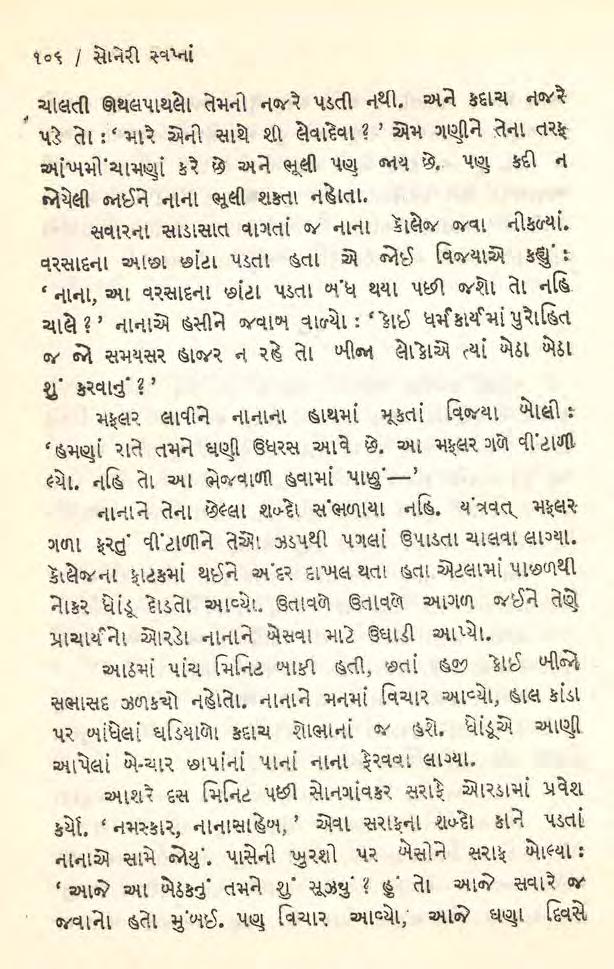 ૧૦૬ / સોનેરી સ્વપ્નાં
ચાલતી ઊથલપાથલો તેમની નજરે પડતી નથી. અને કદાચ નજરે
પડે તો : ‘ મારે એની સાથે શી લેવાદેવા ? ’ એમ ગણીને તેના તરફ
આંખમીંચામણાં કરે છે અને ભૂલી પણ જાય છે. પણ કદી ન
જોયેલી જાઈને નાના ભૂલી શકતા નહોતા.
સવારના સાડાસાત વાગતાં જ નાના કૉલેજ જવા નીકળ્યાં.
વરસાદના આછા છાંટા પડતા હતા એ જોઈ વિજયાએ કહ્યું :
‘ નાના, આ વરસાદના છાંટા પડતા બંધ થયા પછી જશો તો નહિ
ચાલે ? ’ નાનાએ હસીને જવાબ વાળ્યો : ‘ કોઈ ધર્મકાર્યમાં પુરોહિત
જ જો સમયસર હાજર ન રહે તો બીજા લોકોએ ત્યાં બેઠા બેઠા
શું કરવાનું ? ’
મફલર લાવીને નાનાના હાથમાં મૂકતાં વિજયા બોલી :
‘હમણાં રાતે તમને ઘણી ઉધરસ આવે છે. આ મફલર ગળે વીંટાળી
લ્યો. નહિ તો આ ભેજવાળી હવામાં પાછું—’
નાનાને તેના છેલ્લા શબ્દો સંભળાયા નહિ. યંત્રવત્ મફલર
ગળા ફરતું વીંટાળીને તેઓ ઝડપથી પગલાં ઉપાડતા ચાલવા લાગ્યા.
કૉલેજના ફાટકમાં થઈને અંદર દાખલ થતા હતા એટલામાં પાછળથી
નોકર ધોંડૂ દોડતો આવ્યો. ઉતાવળે ઉતાવળે આગળ જઈને તેણે
પ્રાચાર્યનો ઓરડો નાનાને બેસવા માટે ઉઘાડી આપ્યો.
આઠમાં પાંચ મિનિટ બાકી હતી, છતાં હજી કોઈ બીજો
સભાસદ ઝળકચો નહોતો. નાનાને મનમાં વિચાર આવ્યો, હાલ કાંડા
પર બાંધેલાં ઘડિયાળો કદાચ શોભાનાં જ હશે. ધોંડૂએ આણી
આપેલાં બે-ચાર છાપાંનાં પાનાં નાના ફેરવવા લાગ્યા.
આશરે દસ મિનિટ પછી સોનગાંવકર સરાફે ઓરડામાં પ્રવેશ
કર્યો. ‘ નમસ્કાર, નાનાસાહેબ, ’ એવા સરાફના શબ્દો કાને પડતાં
નાનાએ સામે જોયું. પાસેની ખુરશી પર બેસીને સરાફ બોલ્યા :
‘ આજે આ બેઠકનું તમને શું સૂઝ્યું ? હું તો આજે સવારે જ
જવાનો હતો મુંબઈ. પણ વિચાર આવ્યો, આજે ઘણા દિવસે